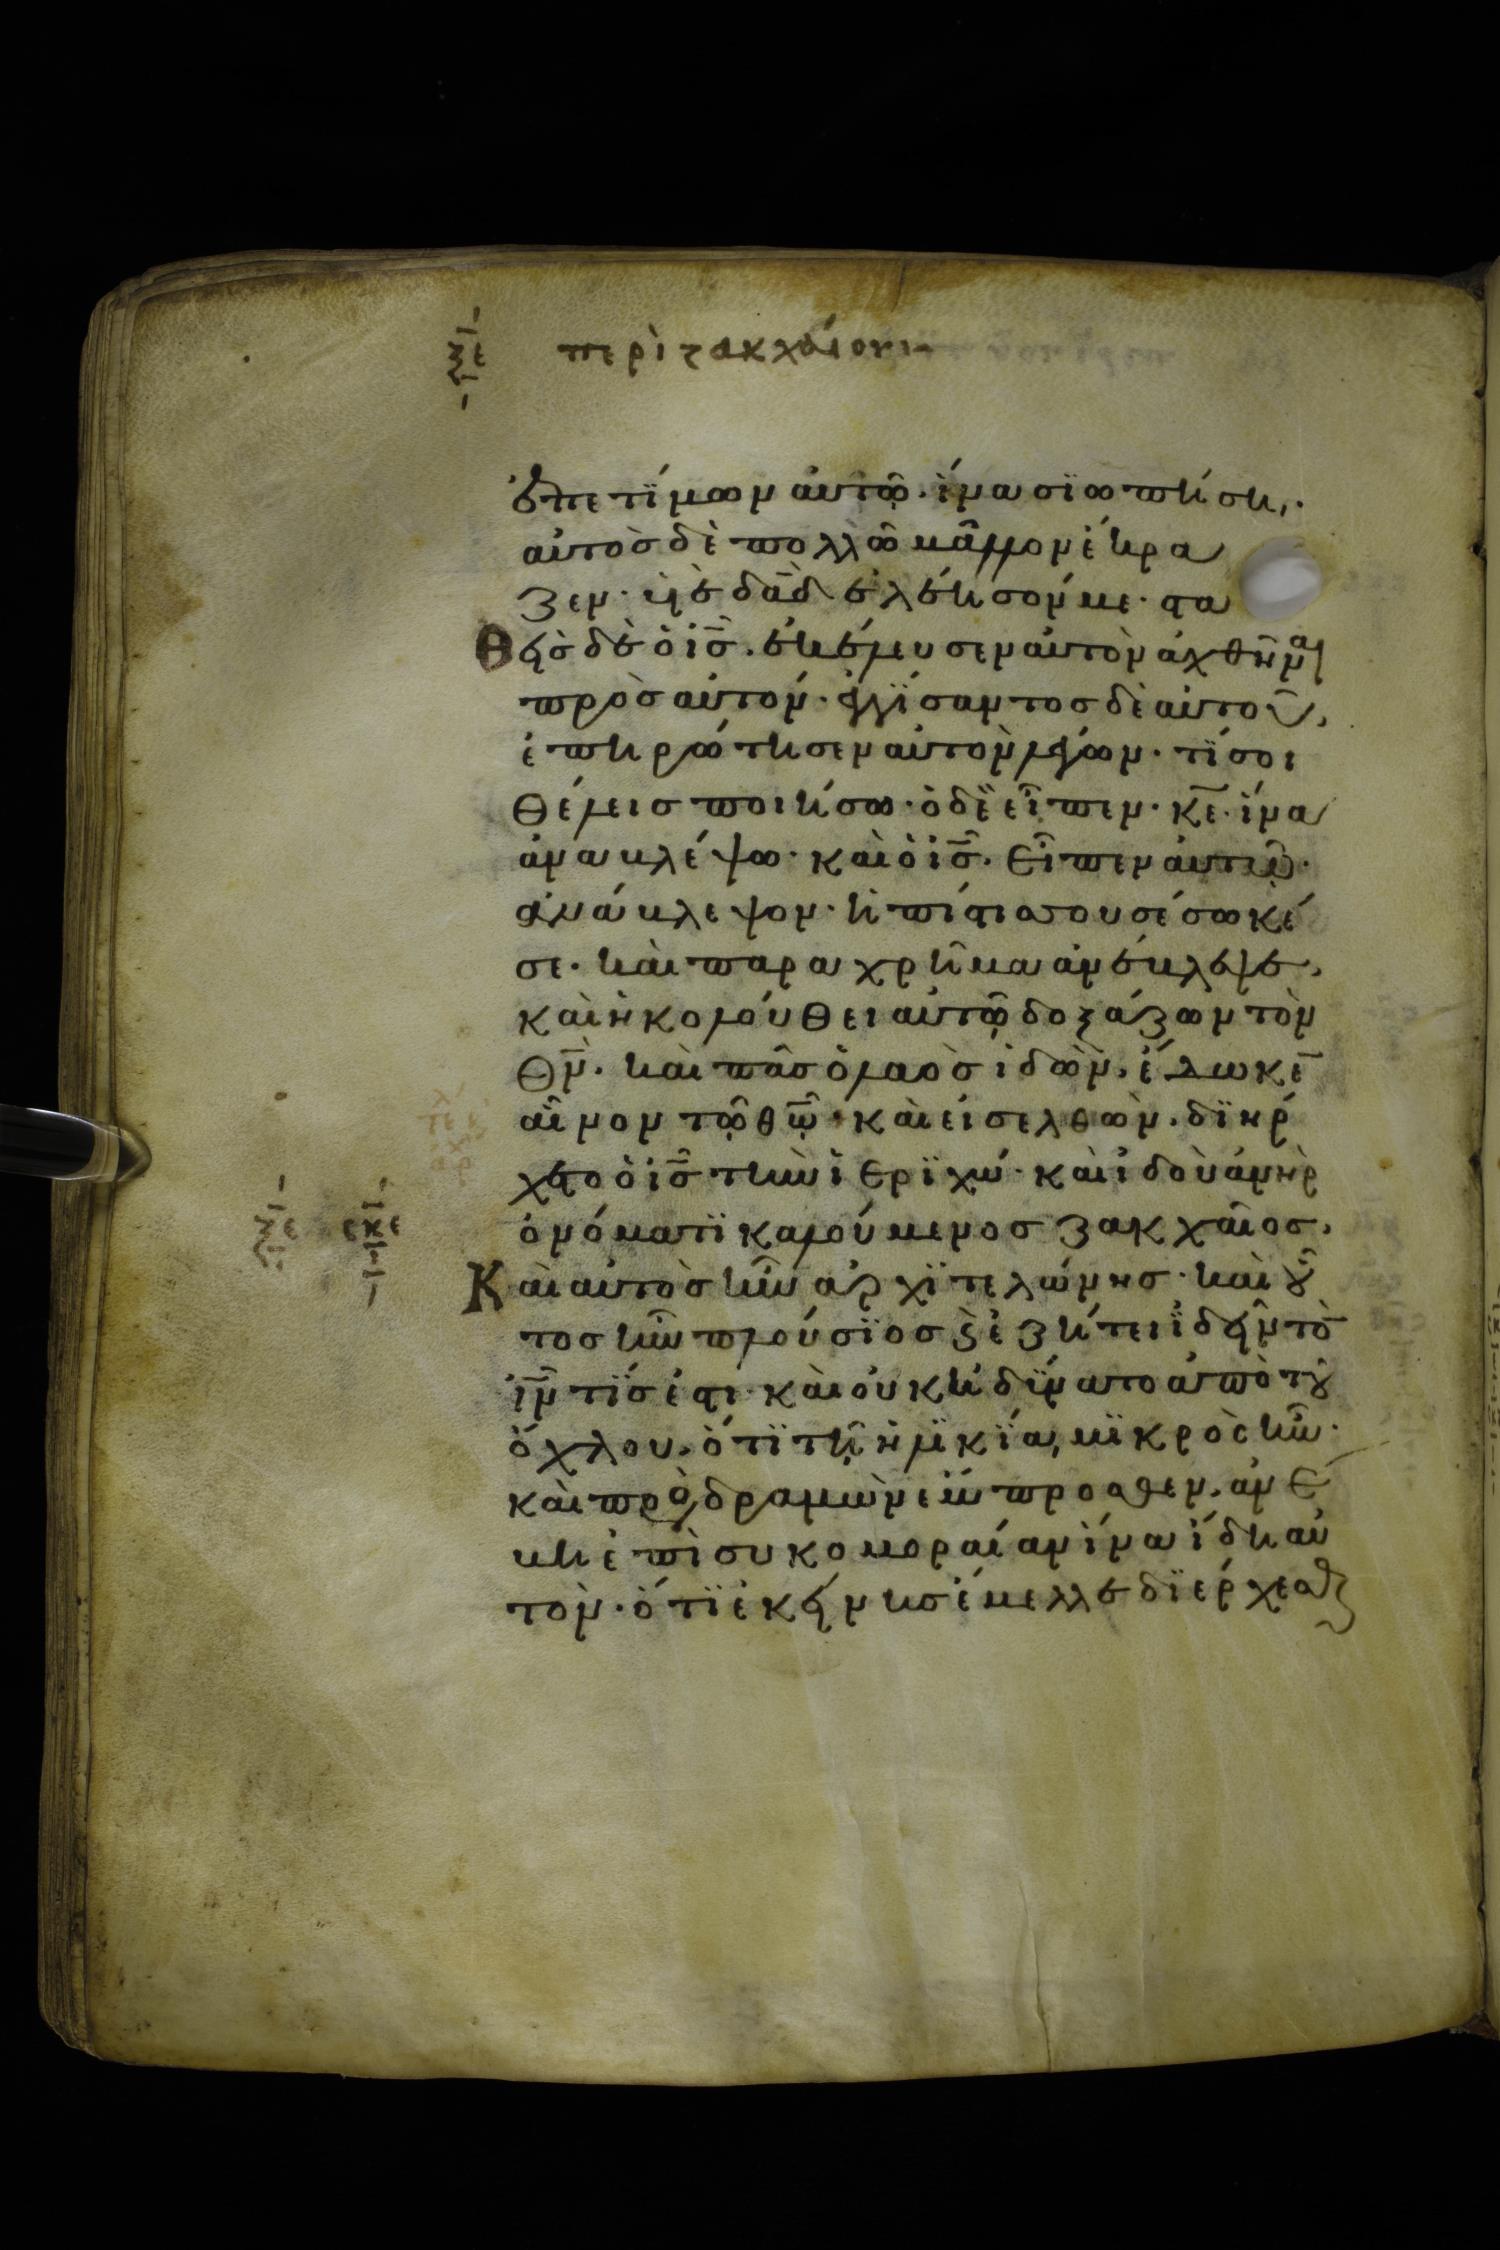 ξε περὶ ζακχαίου
ἐπετίμων αὐτῶ· ἵνα σϊωπήση,·
αὐτὸσ δὲ πολλῶ μᾶλλον ἔκρα
ζεν· ϋἱὲ δᾱδ ἐλέησόν με· στα
Θεὶσ δὲ ὁ ἰ̄σ̄. ἐκέλευσεν αὐτὸν ἀχθῆναι
πρὸσ αὐτόν· ἐγγίσαντοσ δὲ αὐτοῦ,
ἐπηρώτησεν αὐτὸν λέγων· τί σοι
θέλεισ ποιήσω· ὁ δὲ εἶπεν· κ̄ε̄· ἵνα
ἀναβλέψω· καὶ ὁ ἰ̄σ̄. εἶπεν αὐτῶ·
ἀνάβλεψον· ἡ πίστισ σου σέσωκέ
σε· καὶ παραχρῆμα ἀνέβλεψε,
καὶ ἠκολούθει αὐτῶ δοξάζων τὸν
θ̄ν̄· καὶ πᾶσ ὁ λαὸσ ἰδὼν, ἔδωκε̄
αἶνον τῶ θ̄ω̄· καὶ εἰσελθὼν. δϊήρ
χετο ὁ ἰ̄σ̄ τὴν ἱεριχώ· καὶ ἰδοὺ ἀνὴρ
ξε εκε ὀνόματϊ καλούμενοσ ζακχαῖοσ,
Καὶ αὐτὸσ ἦν ἀρχϊτελώνησ· καὶ οὗ
τοσ ἦν πλούσϊοσ ϗ̀ ἐζήτει ἰδεῖν τὸ
ἰ̄ν̄ τίσ ἐστι· καὶ οὐκ ἠδύνατο ἀπὸ τοῦ
ὄχλου, ὅτϊ τῆ ἡλϊκία, μϊκρὸσ ἦν·
καὶ προδραμὼν ἔμπροσθεν, ἀνέ
βη ἐπὶ συκομοραίαν ἵνα ἴδη αὐ
τὸν· ὅτϊ ἐκείνησ ἔμελλε δϊέρχεσθαι